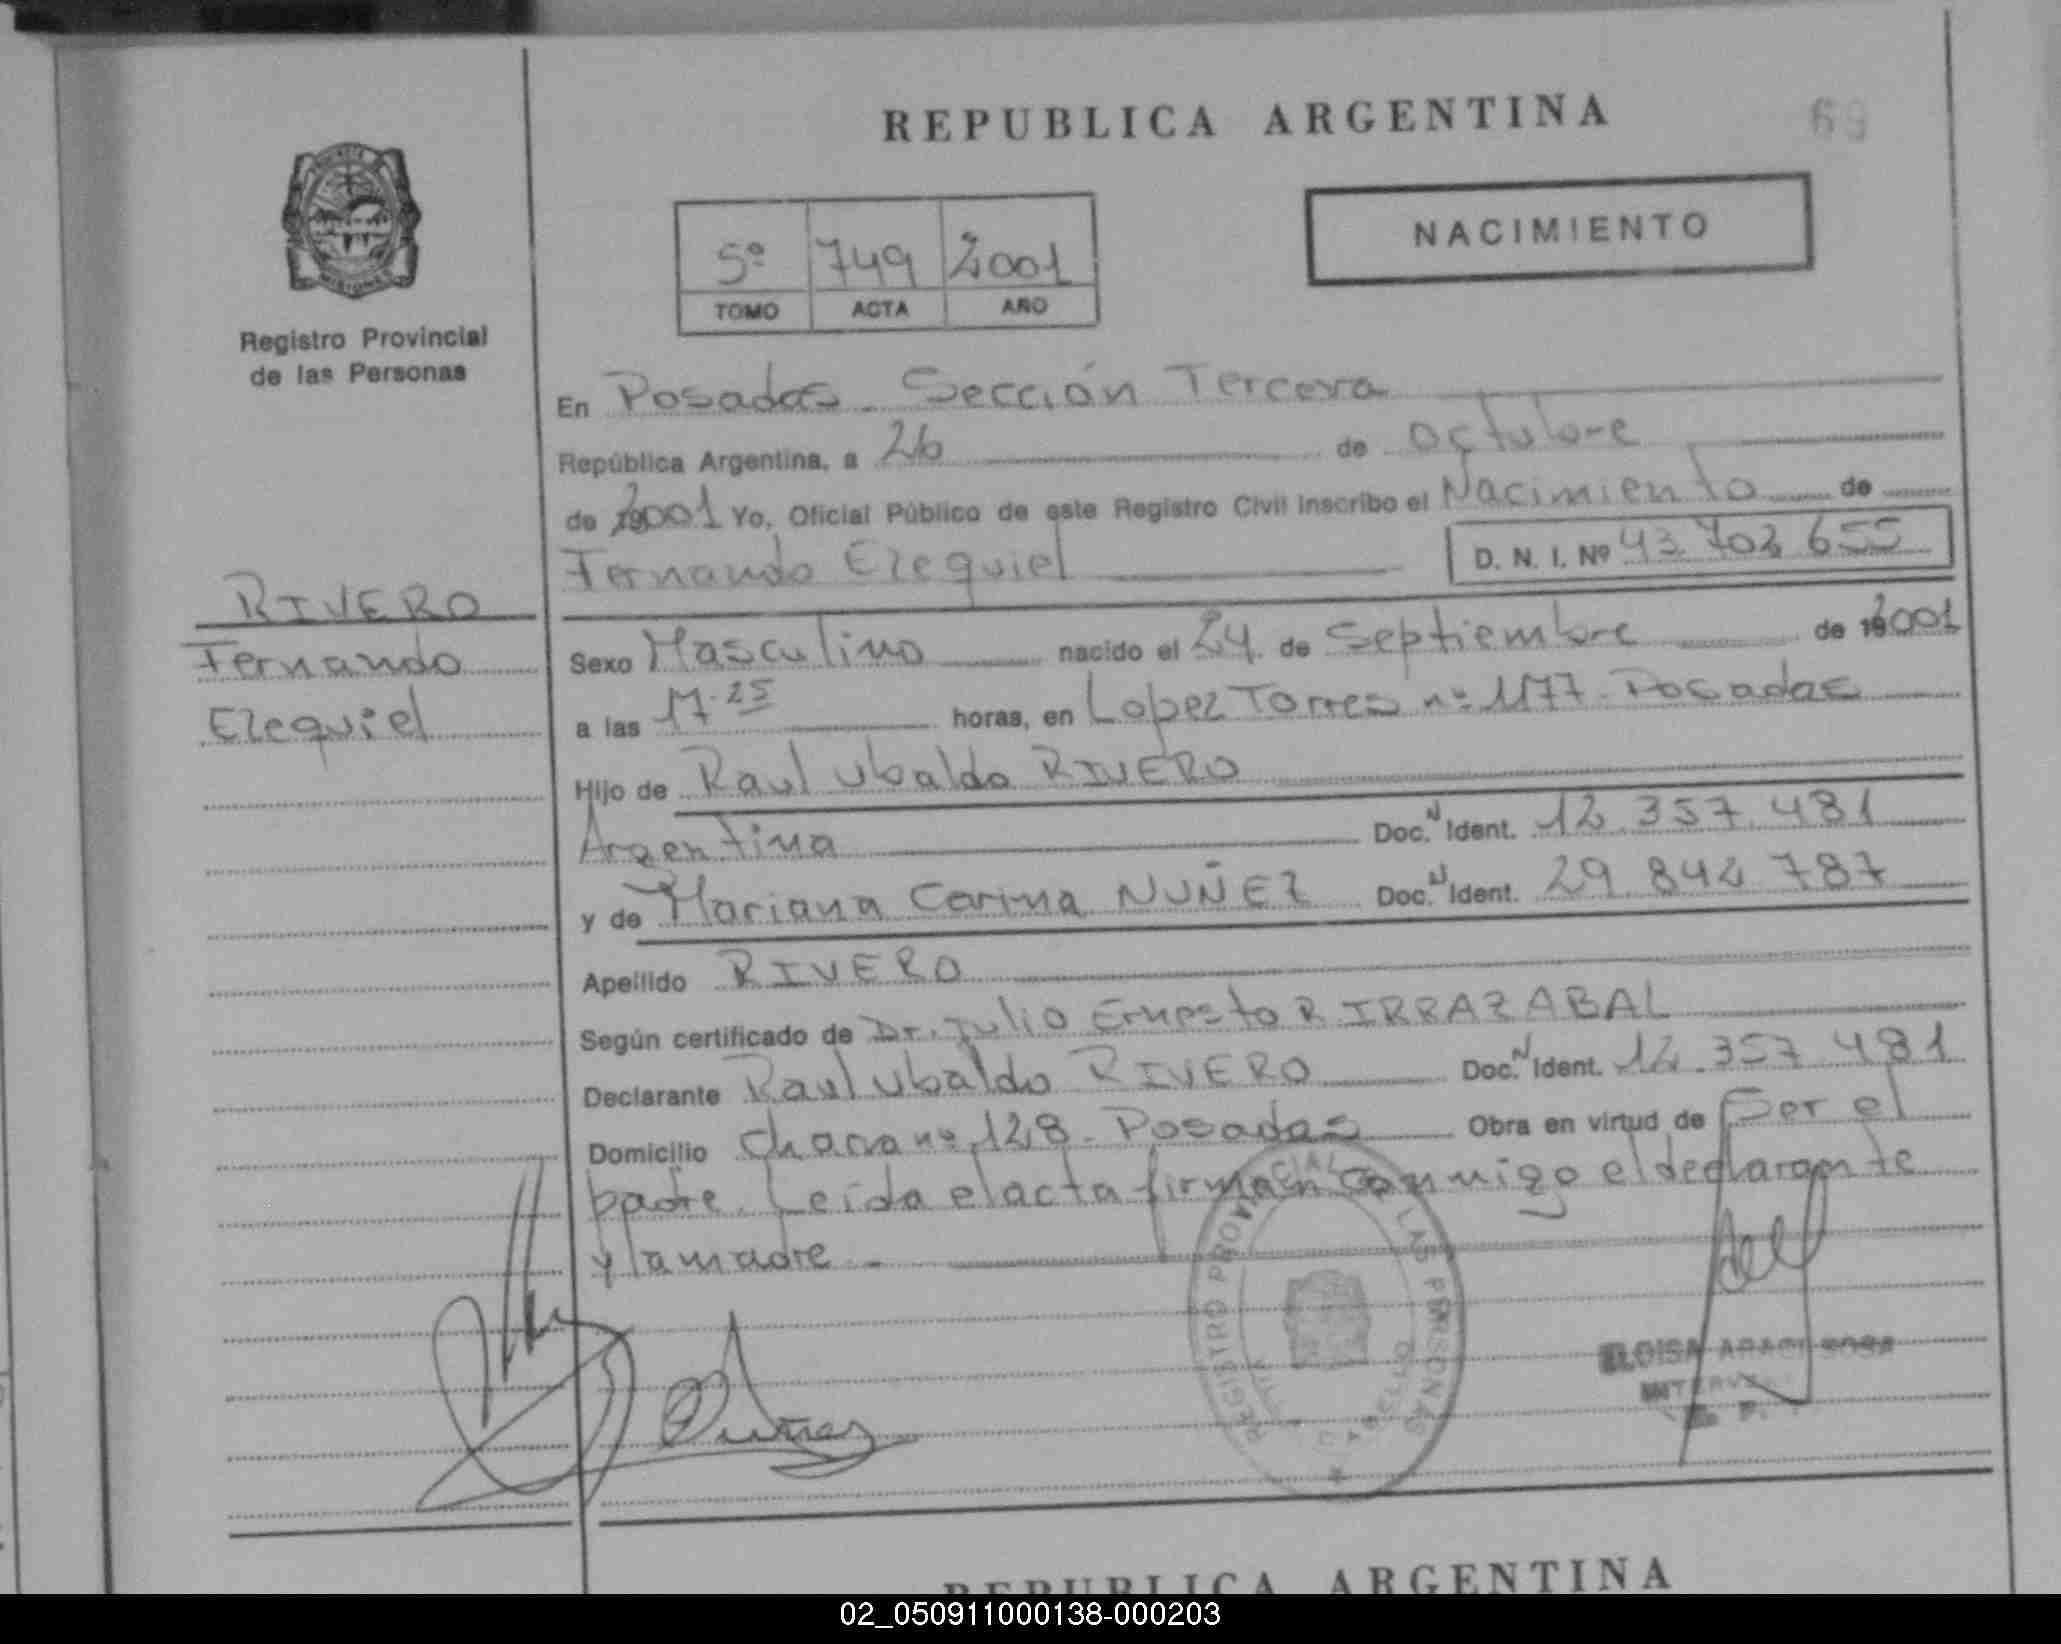 REPUBLICA ARGENTINA
69
NACIMIENTO
5º 749 2001
TOMO ACTA AÑO
MISIONES
Registro Provincial
de las Personas
RIVERO
Fernando
Ezequiel
En Posadas - Sección Tercera
República Argentina, a 26 de Octubre
de 2001 Yo, Oficial Público de este Registro Civil inscribo el Nacimiento de
Fernando Ezequiel D. N. I. Nº 43.703.655
Sexo Masculino nacido el 24 de Septiembre de 2001
a las 17.25 horas, en Lopez Torres nº 1177 - Posadas
Hijo de Raul Ubaldo RIVERO
Argentina Doc. N Ident. 12.357.481
y de Mariana Carina NUÑEZ Doc. N Ident. 29.842.787
Apellido RIVERO
Según certificado de Dr. Julio Ernesto R. IRRAZABAL
Declarante Raul Ubaldo RIVERO Doc. N Ident. 12.357.481
Domicilio Chacra nº 128 - Posadas Obra en virtud de Ser el
padre. Leida el acta firman conmigo el declarante
y la madre.-
REGISTRO PROVINCIAL DE LAS PERSONAS
Nuñez
ELOISA ARACI SOSA
REPUBLICA ARGENTINA
02_050911000138-000203